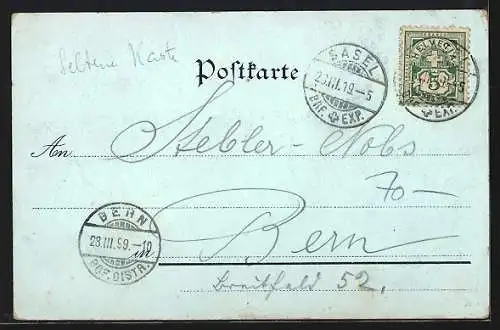 Seltene Karte
Postkarte
BASEL
23.III.19-5
BRF. EXP.
HELVETIA
5
EXP.
An Stebler-Nobs
70-
BERN
23.III.99.-10
BRF. DISTR.
in Bern
Breitfeld 52.